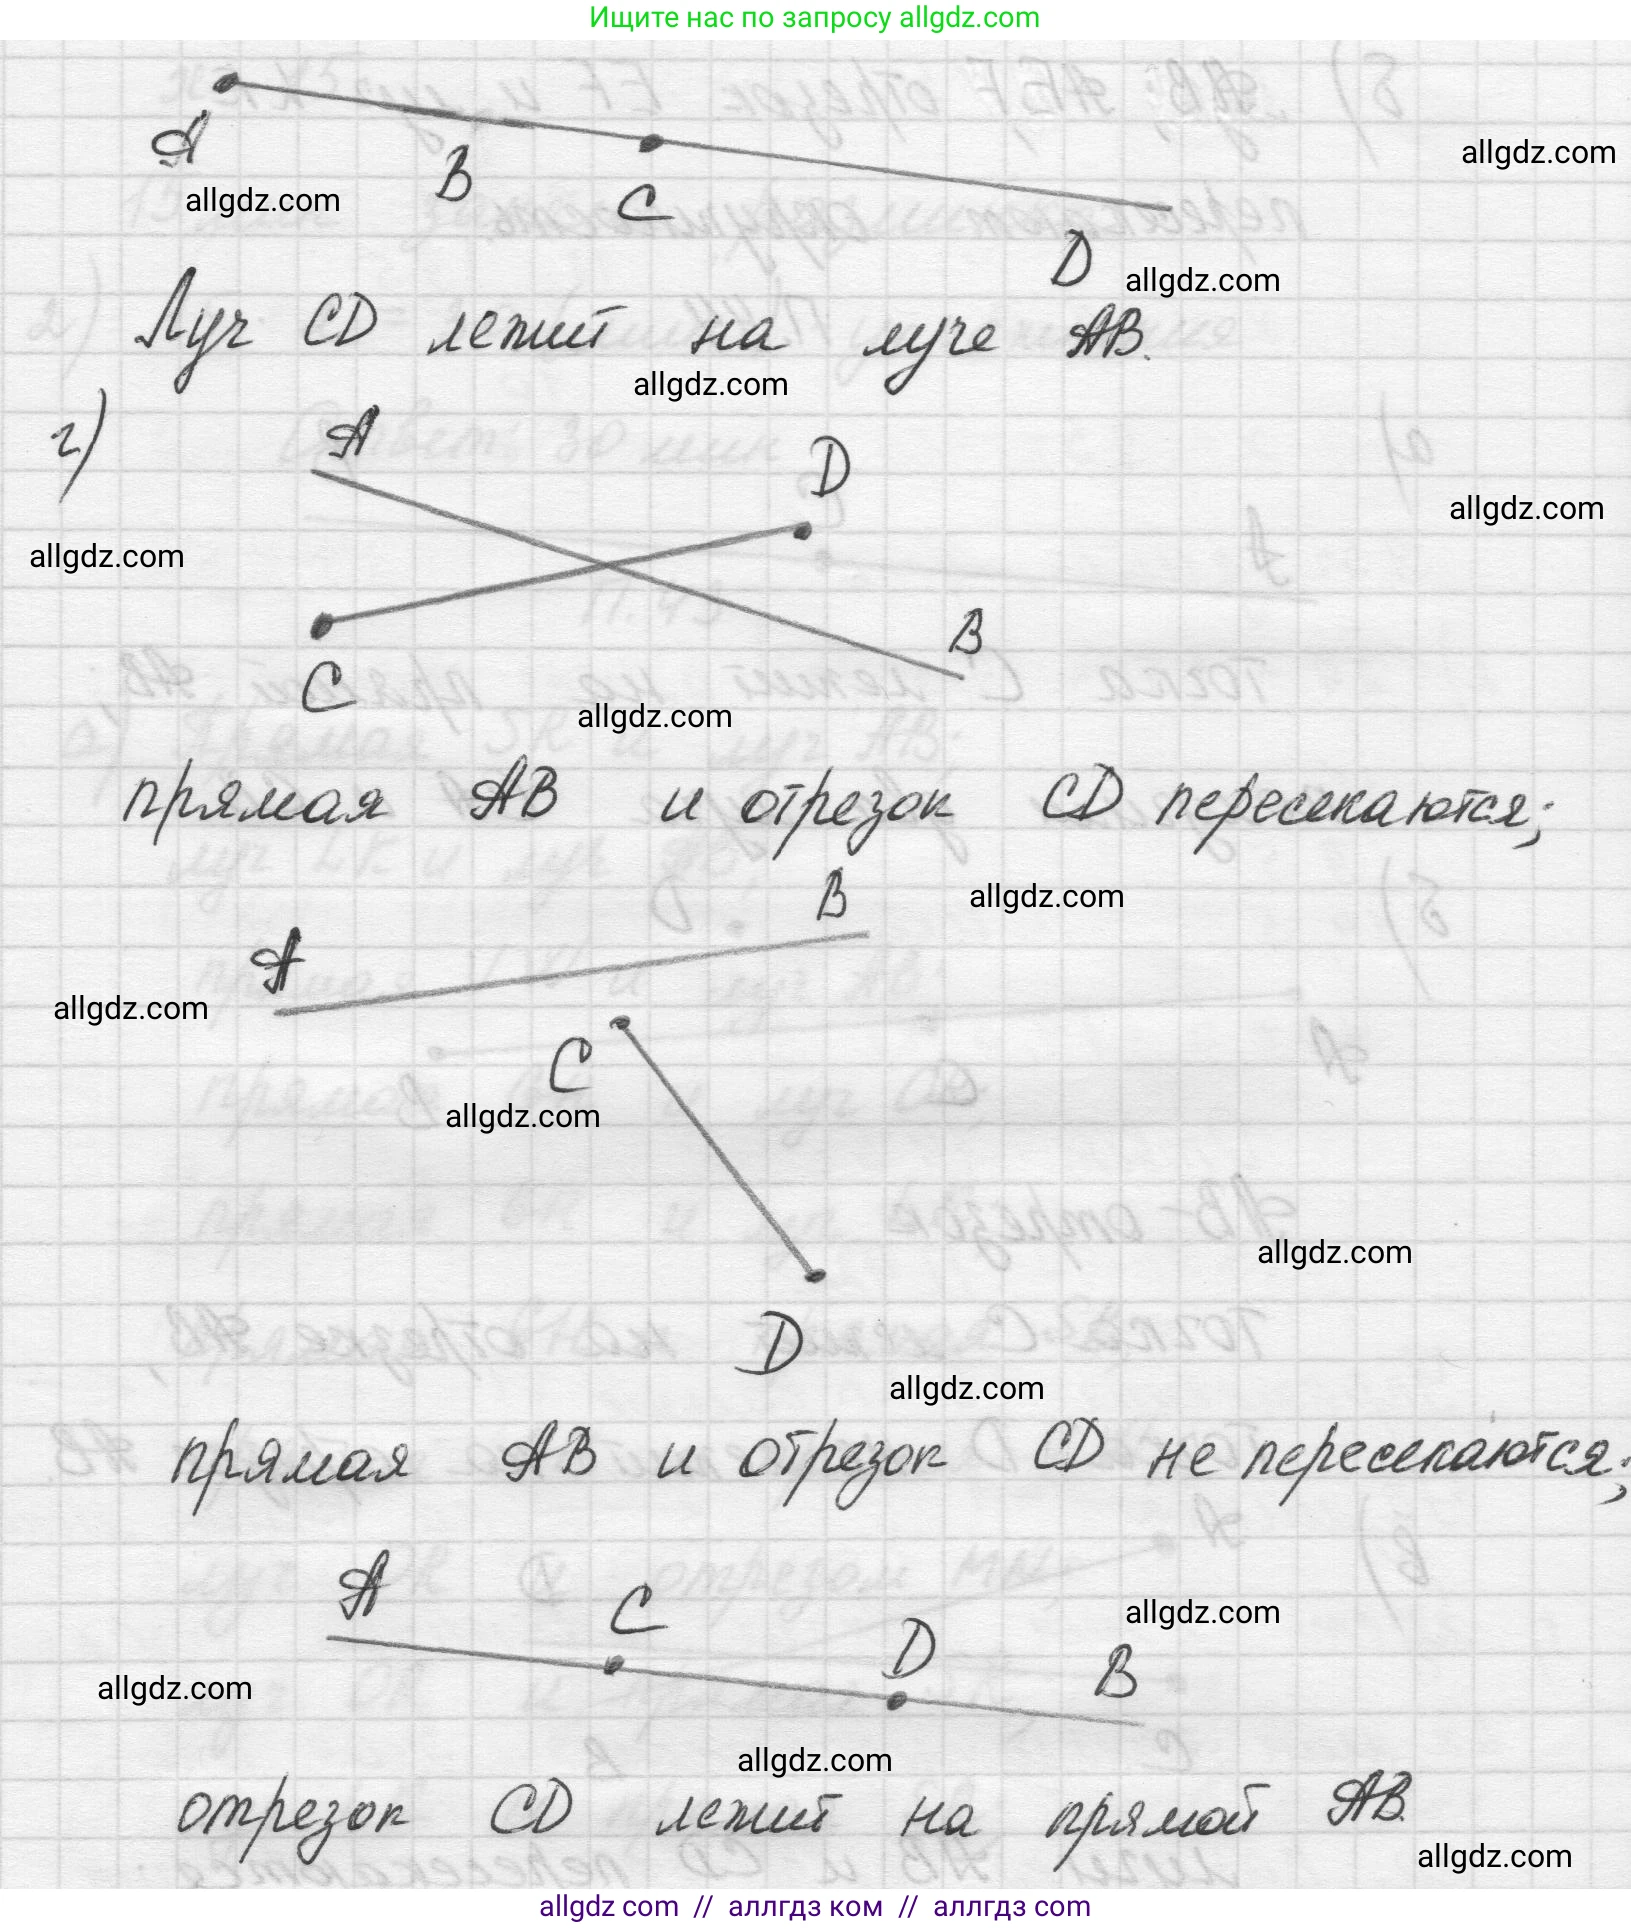 Ищите нас по запросу allgdz.com
A
B
C
D
allgdz.com
allgdz.com
allgdz.com
Луч CD лежит на луче AB.
allgdz.com
г)
A
D
allgdz.com
allgdz.com
B
C
allgdz.com
прямая AB и отрезок CD пересекаются;
B
allgdz.com
A
allgdz.com
C
allgdz.com
allgdz.com
D
allgdz.com
прямая AB и отрезок CD не пересекаются;
A
C
allgdz.com
D
B
allgdz.com
allgdz.com
отрезок CD лежит на прямой AB.
allgdz.com
allgdz com // аллгдз ком // аллгдз com